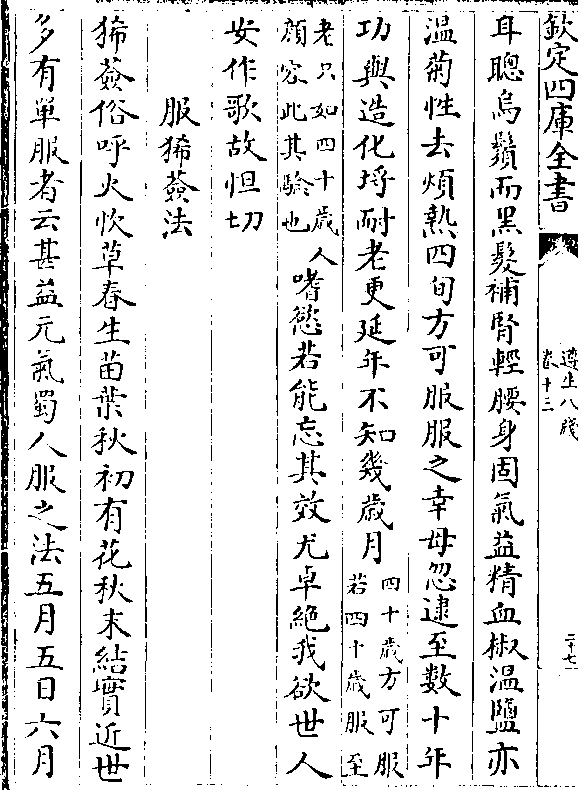 欽定四庫全書
遵生八牋
卷十三
二十七
耳聰烏鬚而黑髮補腎輕腰身固氣益精血椒溫鹽亦
溫菊性去煩熱四旬方可服服之幸毋忽逮至數十年
功與造化埒耐老更延年不知幾歲月四十歲方可服若四十歲服至
老只如四十歲顔容此其驗也人嗜慾若能忘其效尤卓絶我欲世人
安作歌故怛切
服豨薟法
豨薟俗呼火炊草春生苗葉秋初有花秋末結實近世
多有單服者云甚益元氣蜀人服之法五月五日六月